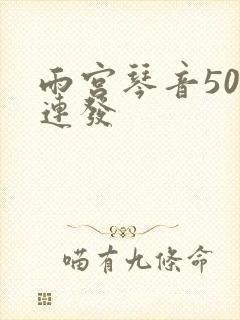 雨宮琴音50
連發
喵有九條命